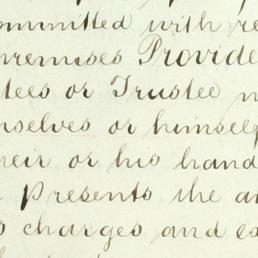 ommitted with re
premises Provide
tees or Trustee
mselves or himself
heir or his hand
Presents the a
charges and ex